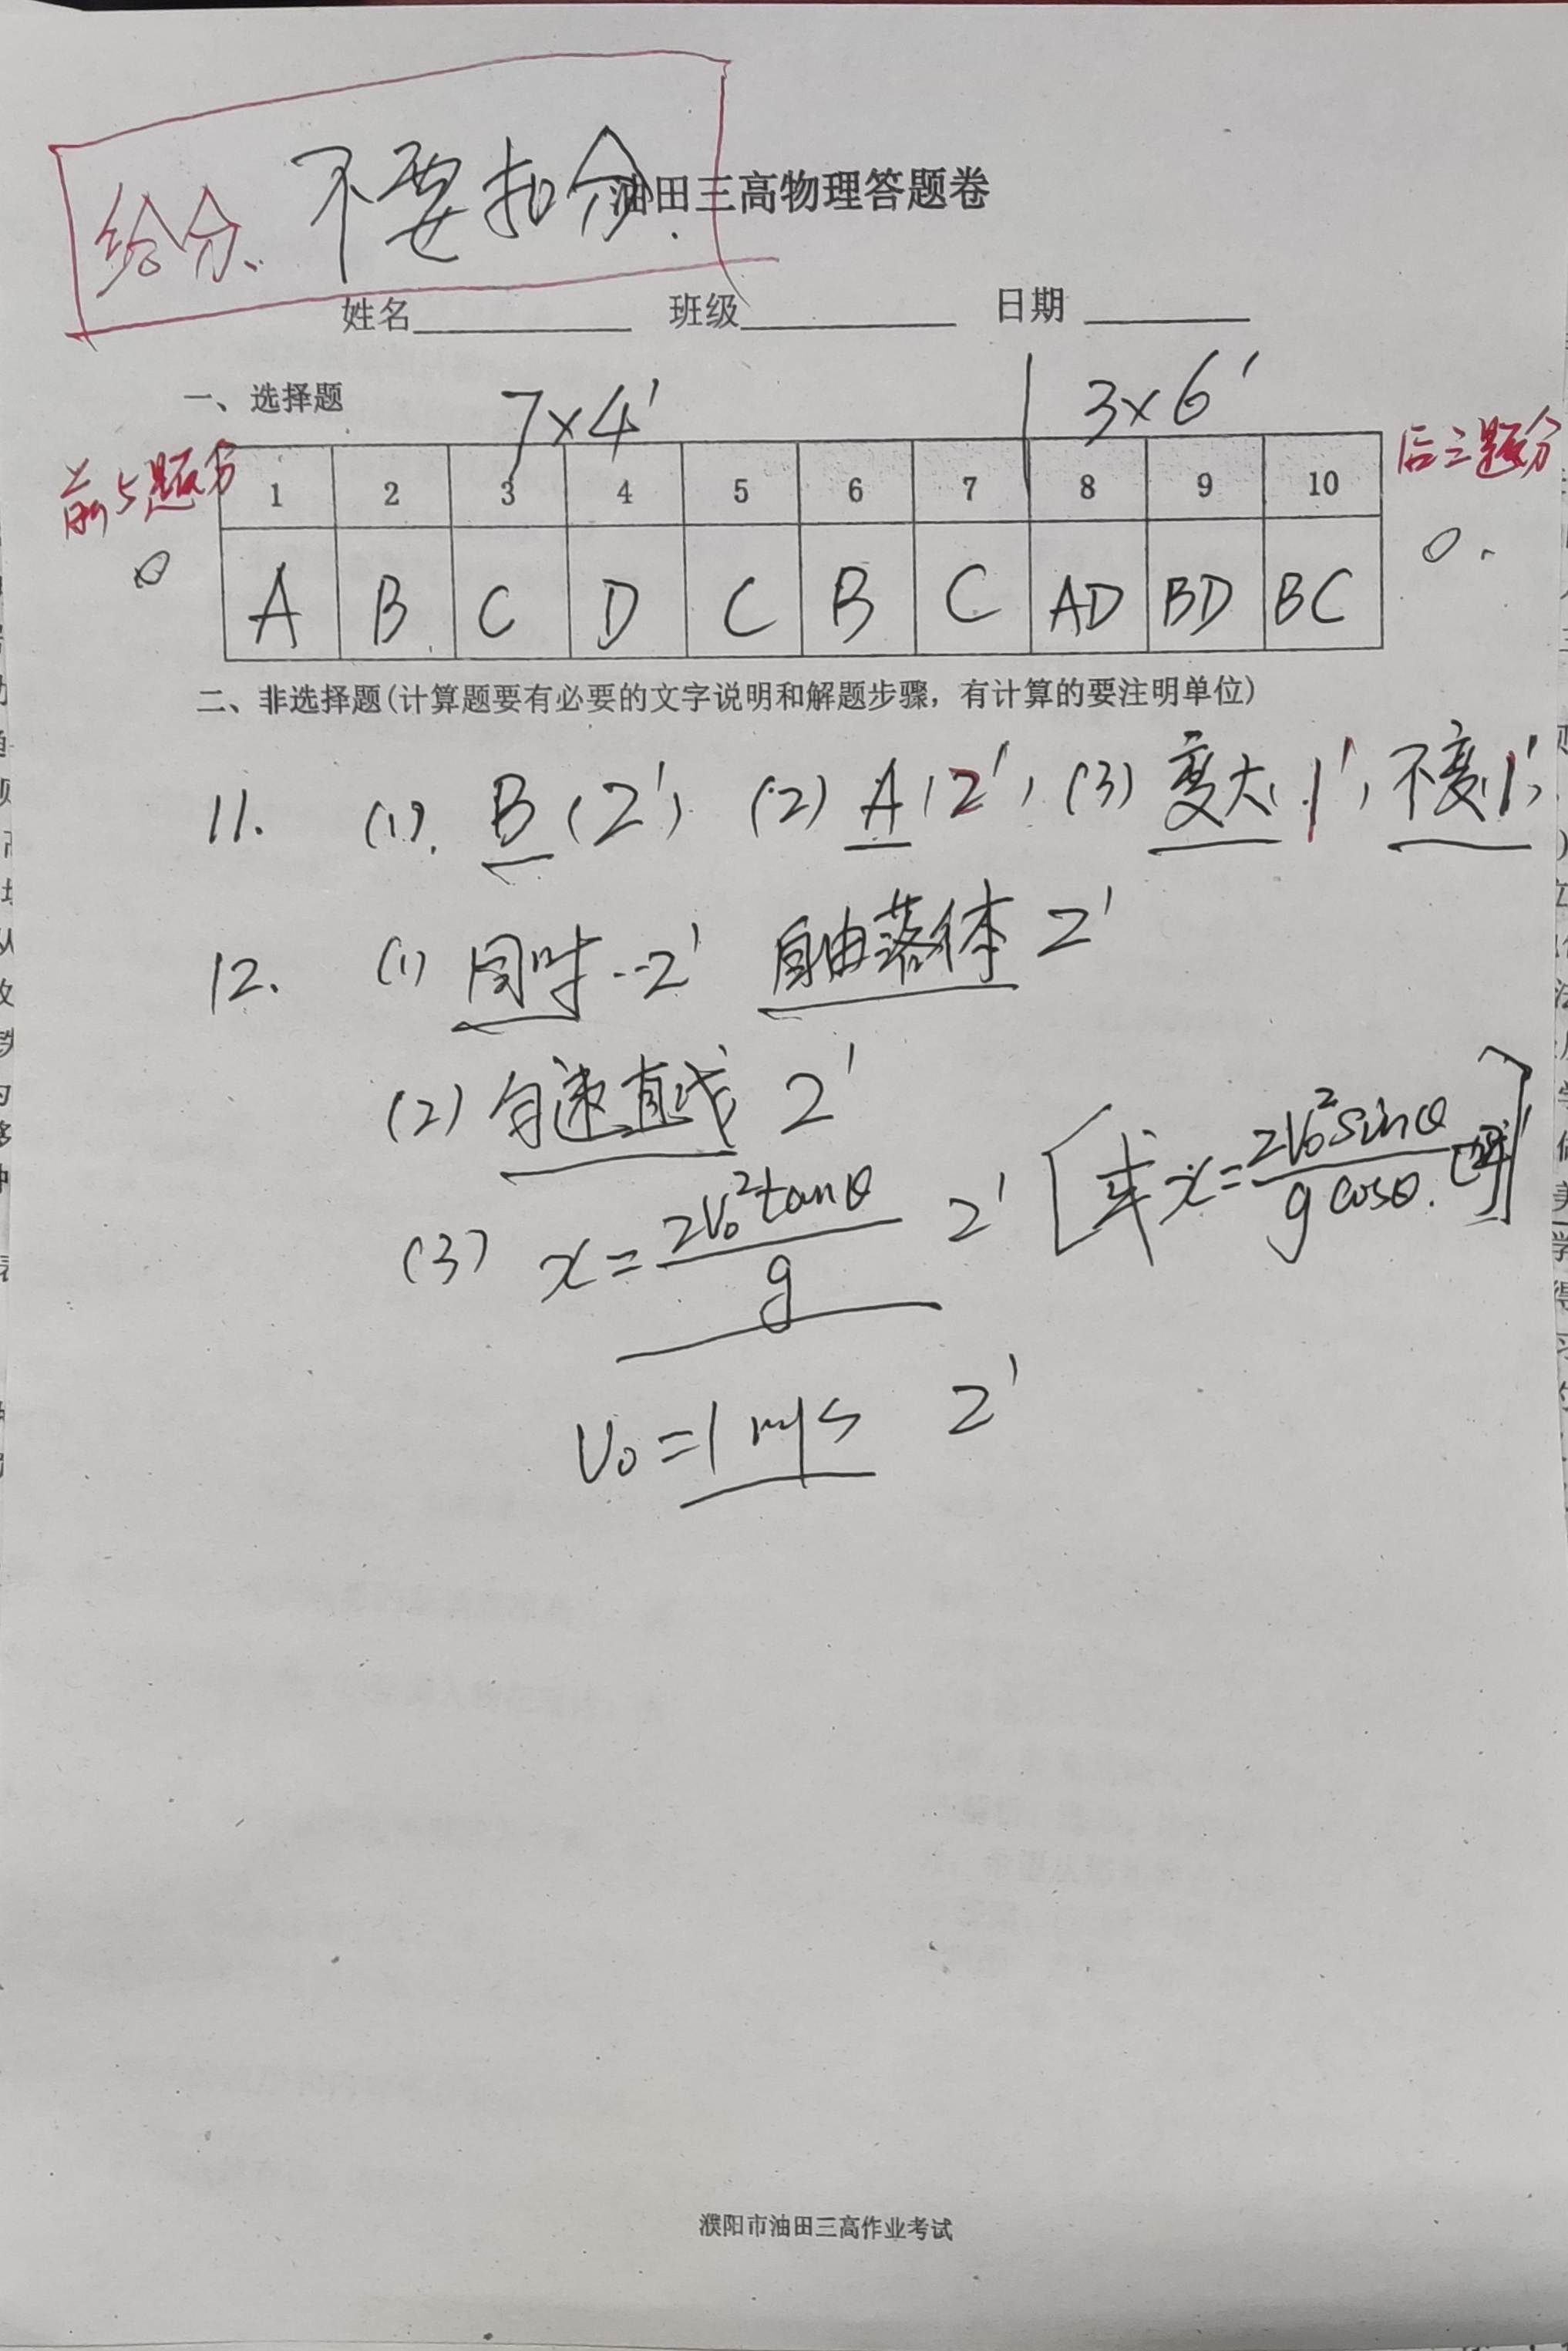 给分、不要扣分.
油田三高物理答题卷
姓名 班级 日期
一、选择题 7×4′ 3×6′
前5题分 后三题分
1 2 3 4 5 6 7 8 9 10
0 0.
A B C D C B C AD BD BC
二、非选择题(计算题要有必要的文字说明和解题步骤，有计算的要注明单位)
11. (1). B (2′, (2) A (2′, (3) 变大. 1′, 不变. 1′,
12. (1) 同时--2′ 自由落体 2′
(2) 匀速直线 2′
(3) x=2V₀²tanθ/g 2′ [或 x=2V₀²sinθ/g cosθ. ]
V₀=1 m/s 2′
濮阳市油田三高作业考试